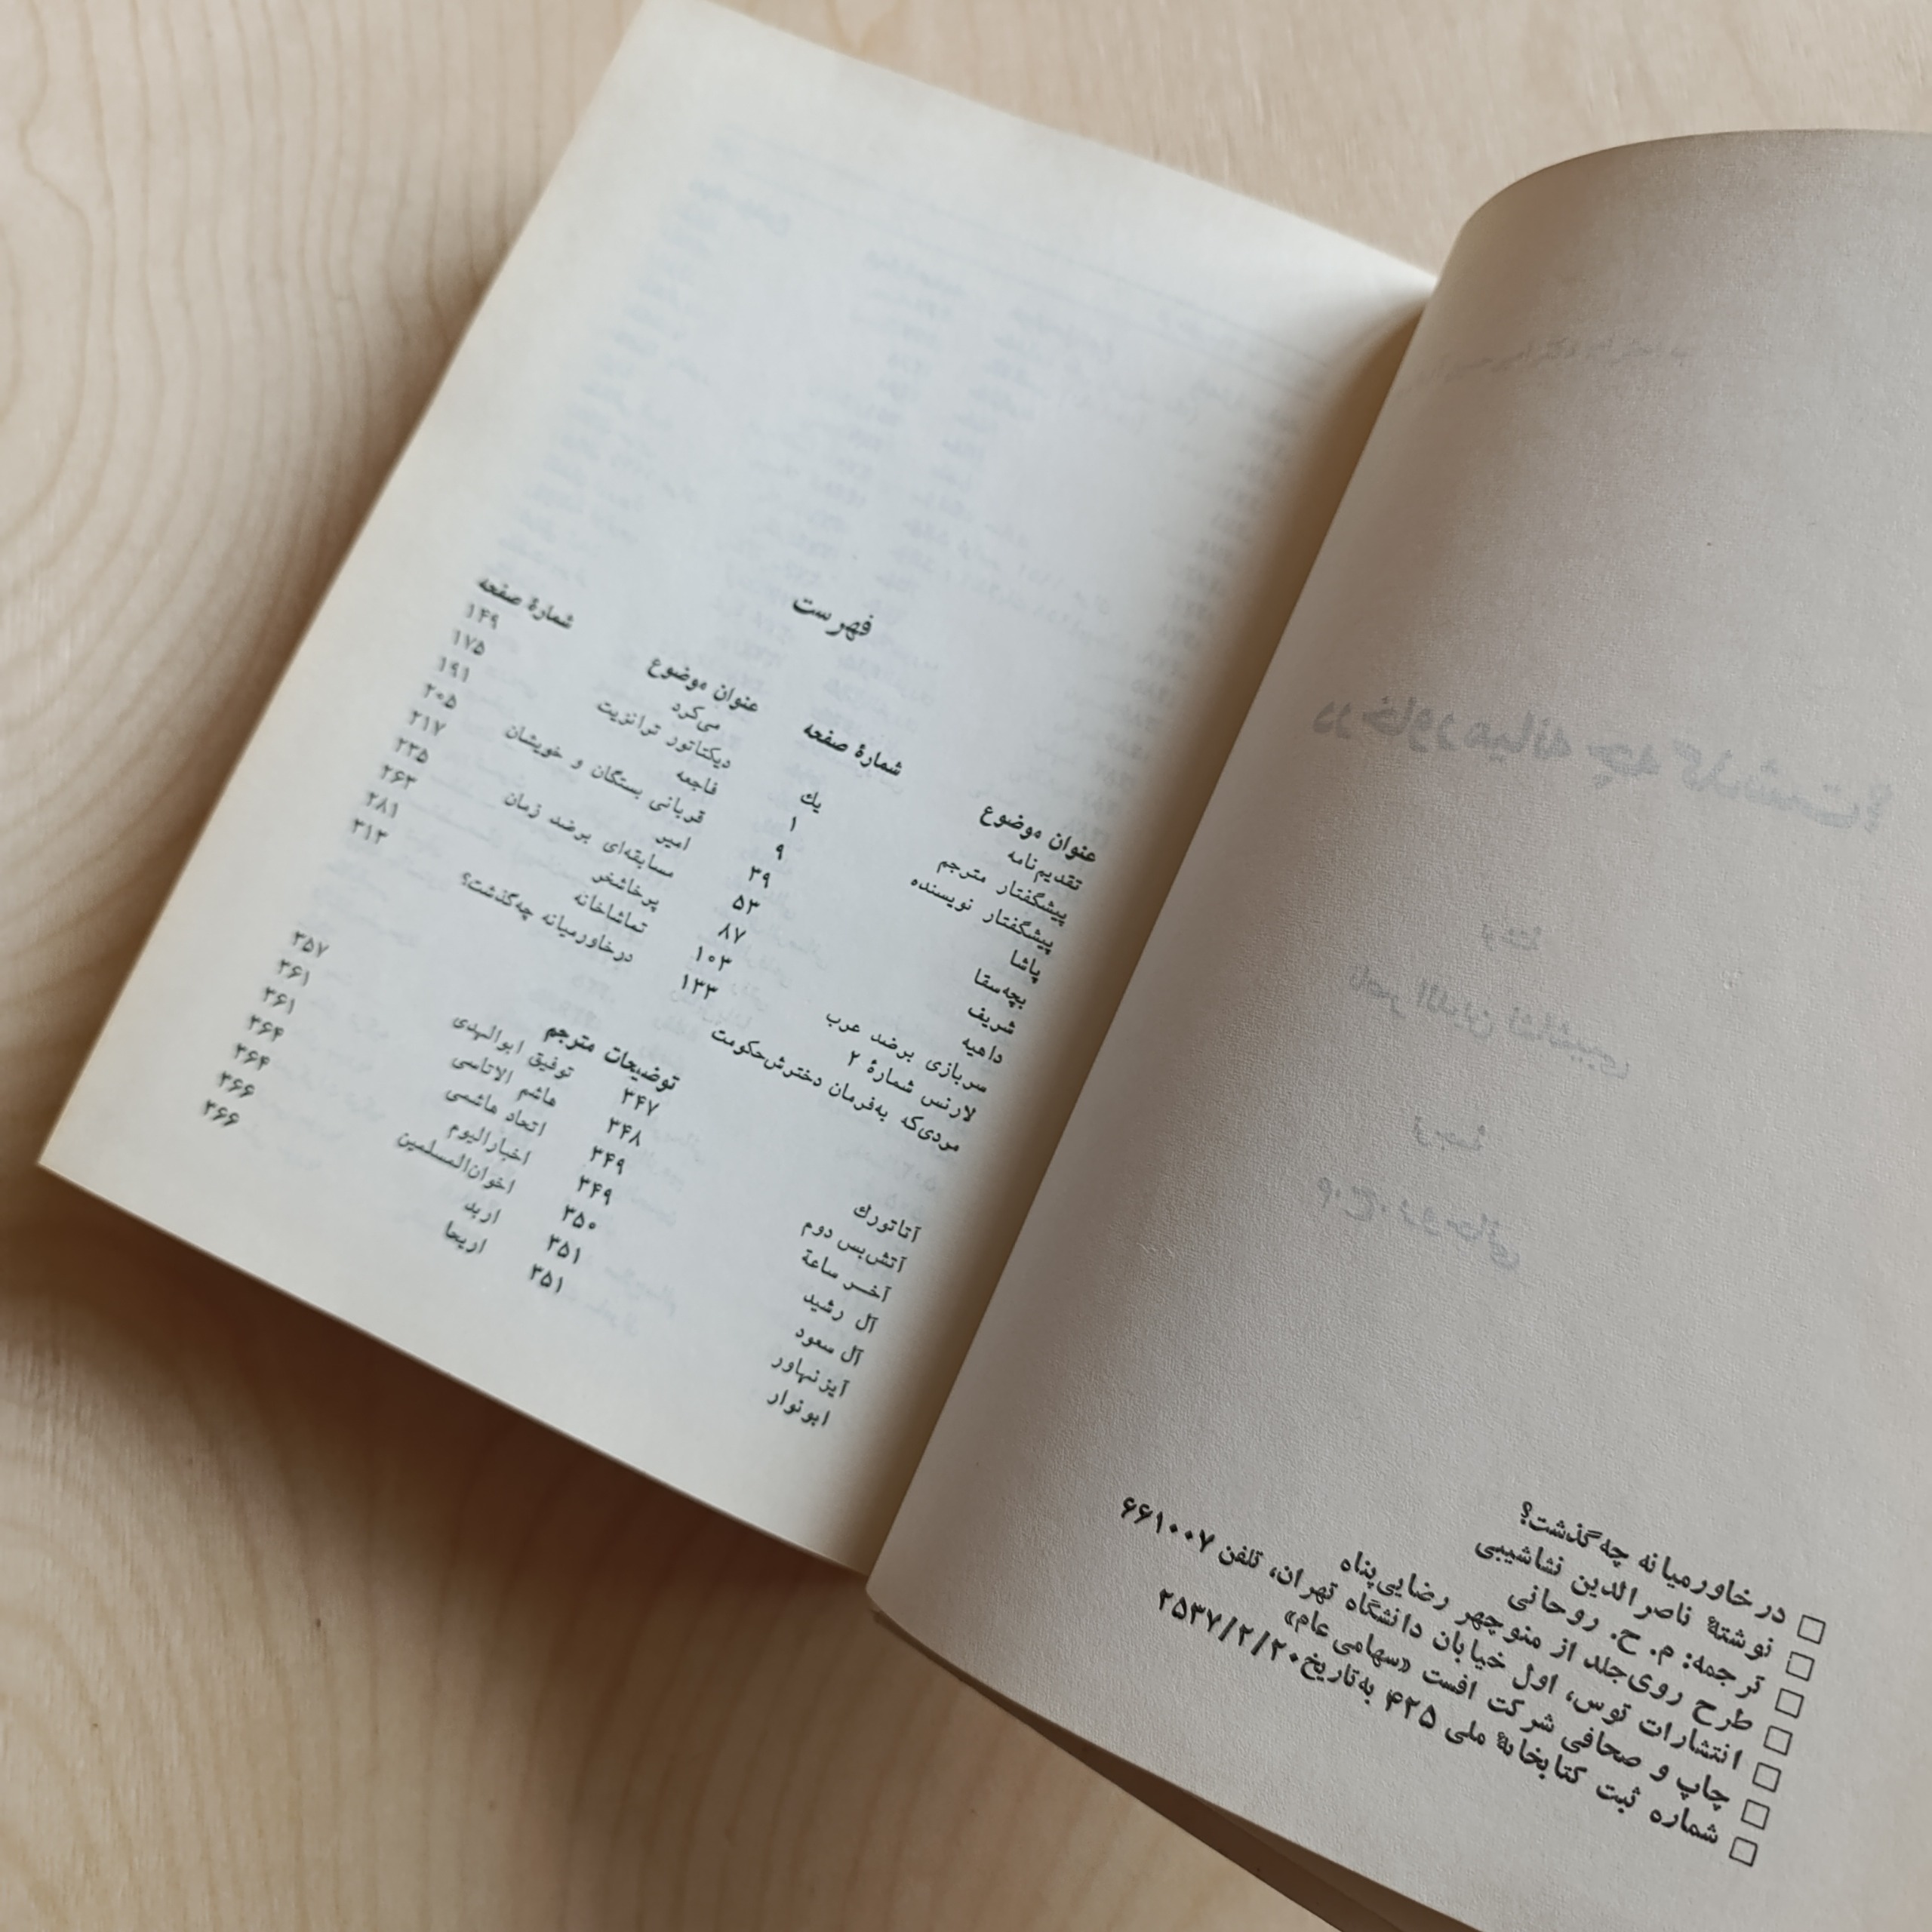 □ در خاورمیانه چه گذشت؟
□ نوشتهٔ ناصرالدین نشاشیبی
□ ترجمه: م. ح. روحانی
□ طرح روی‌جلد از منوچهر رضایی‌پناه
□ انتشارات توس، اول خیابان دانشگاه تهران، تلفن ۶۶۱۰۰۷
□ چاپ و صحافی شرکت افست «سهامی عام»
□ شماره ثبت کتابخانهٔ ملی ۴۲۵ به‌تاریخ ۲۵۳۷/۲/۲۰
فهرست
عنوان موضوع شمارهٔ صفحه
تقدیم‌نامه یك
پیشگفتار مترجم ۱
پیشگفتار نویسنده ۹
پاشا ۳۹
بچه‌سقا ۵۳
شریف ۸۷
داهیه ۱۰۳
سربازی برضد عرب ۱۳۳
لارنس شمارهٔ ۲
مردی‌که به‌فرمان دخترش‌حکومت
عنوان موضوع شمارهٔ صفحه
می‌کرد ۱۴۹
دیکتاتور ترانزیت ۱۷۵
فاجعه ۱۹۱
قربانی بستگان و خویشان ۲۰۵
امیر ۲۱۷
مسابقه‌ای برضد زمان ۲۳۵
پرخاشخر ۲۶۳
تماشاخانه ۲۸۱
درخاورمیانه چه‌گذشت؟ ۳۱۳
توضیحات مترجم
آتاتورك ۳۴۷
آتش‌بس دوم ۳۴۸
آخـر ساعة ۳۴۹
آل رشید ۳۴۹
آل سعود ۳۵۰
آیزنهاور ۳۵۱
ابونوار ۳۵۱
توفیق ابوالهدی ۳۵۷
هاشم الاتاسی ۳۶۱
اتحاد هاشمی ۳۶۱
اخبارالیوم ۳۶۴
اخوان‌المسلمین ۳۶۴
اربد ۳۶۶
اریحا ۳۶۶